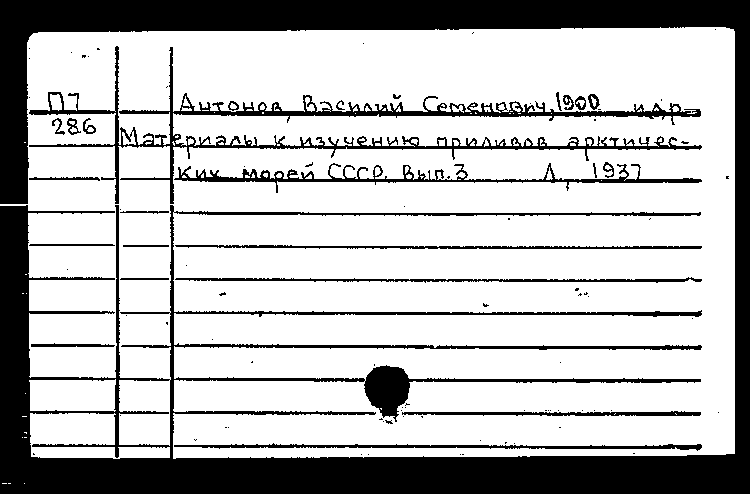 П7 Антонов, Василий Семенович, 1900 и др.
286 Материалы к изучению приливов арктичес-
ких морей СССР. Вып. 3 Л., 1937